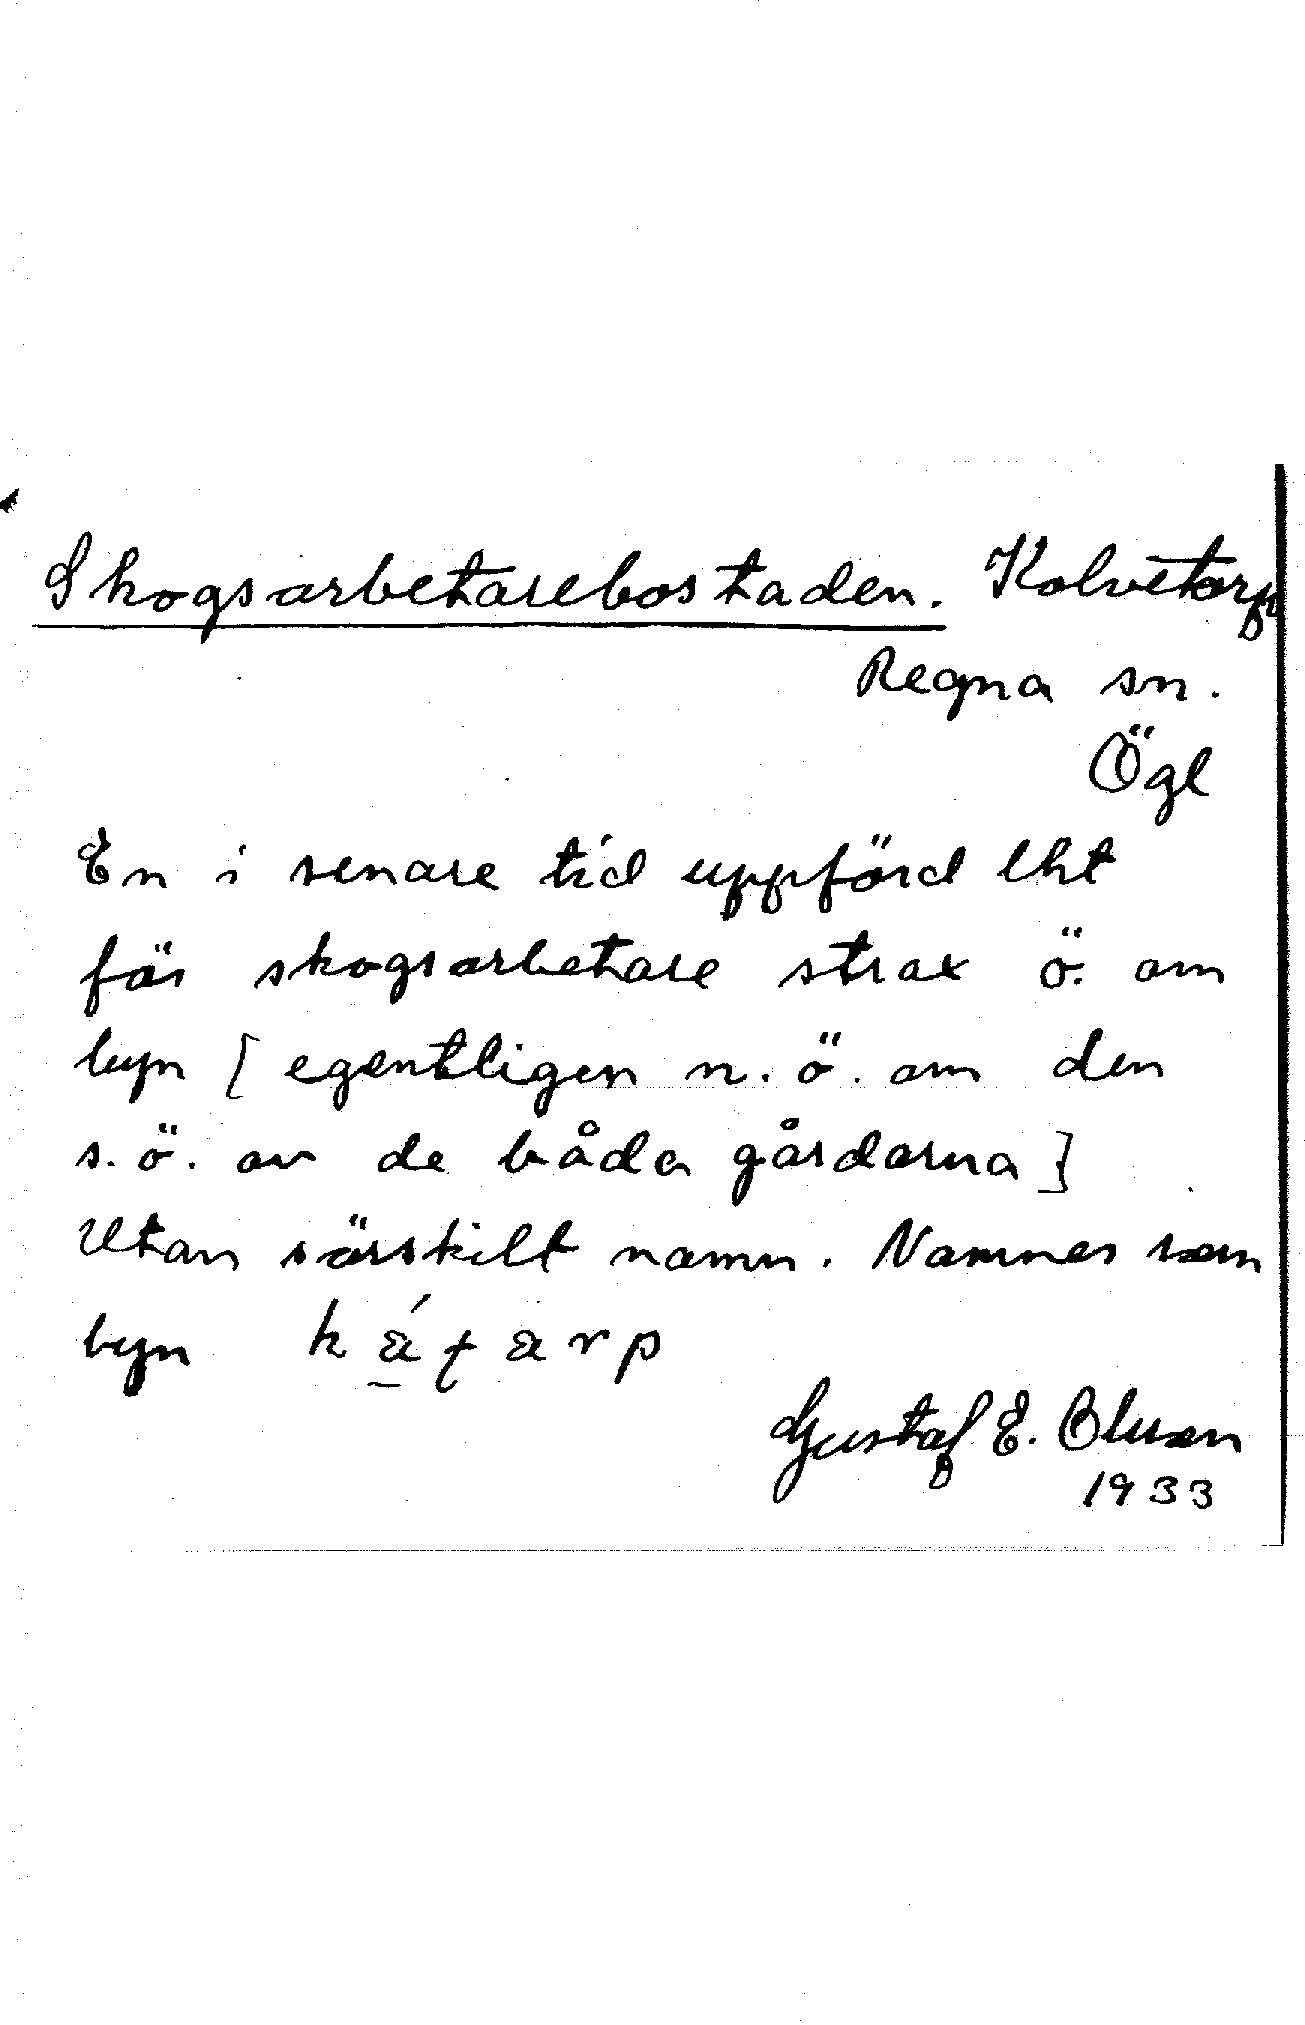 Skogsarbetarebostaden. Kolvetorp
Regna sn.
Ögl
En i senare tid uppförd lht
för skogsarbetare strax ö. om
byn [egentligen n.ö. om den
s.ö. av de båda gårdarna]
Utan särskilt namn. Namnes som
byn
Gustaf E.
1933